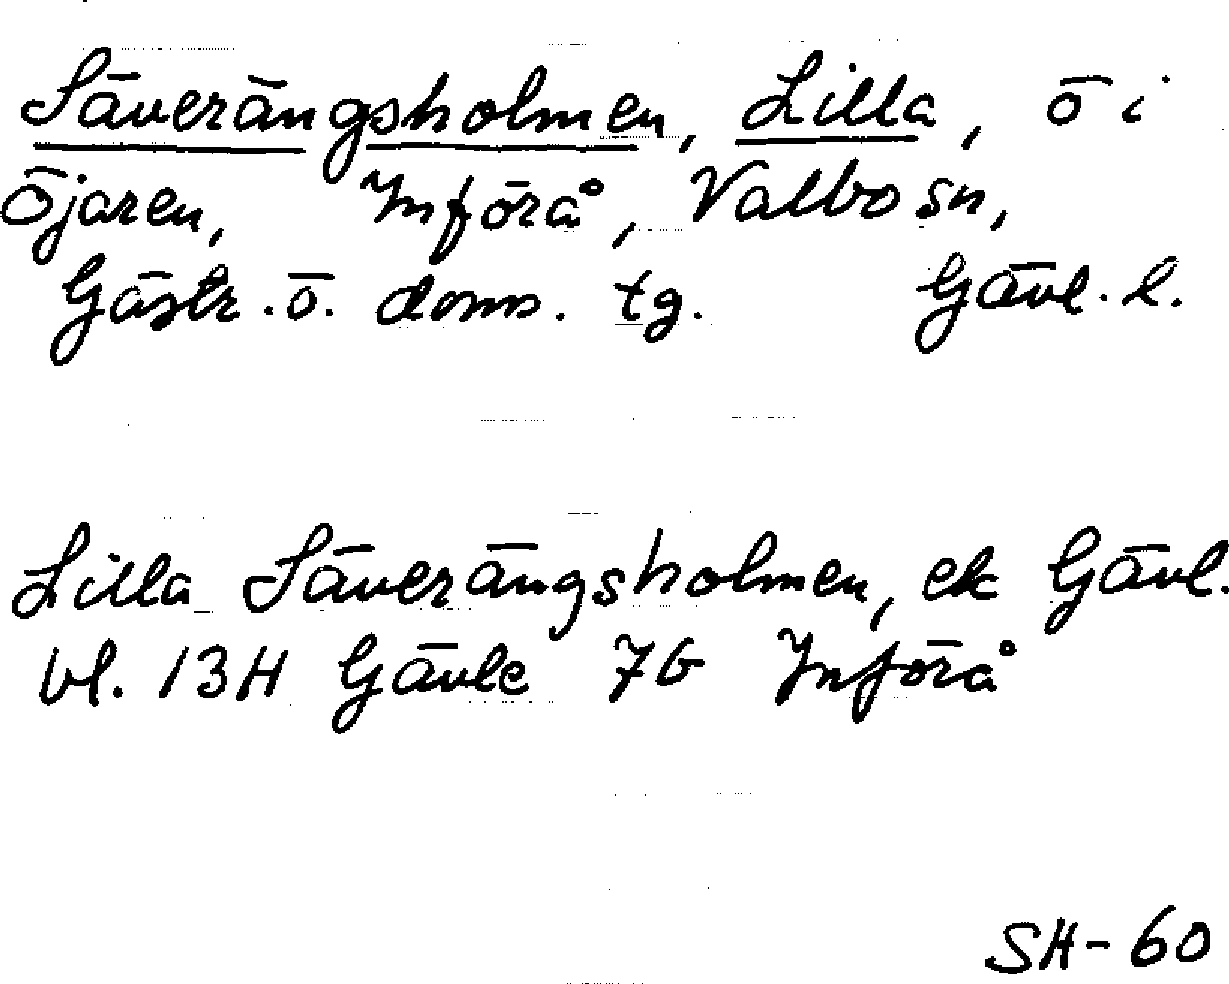 Säverängsholmen, Lilla, ö i
Öjaren, Införå, Valbo sn,
Gästr. ö. doms. tg. Gävl. l.
Lilla Säverängsholmen, ek Gävl.
bl. 13H Gävle 7b Införå
SH-60